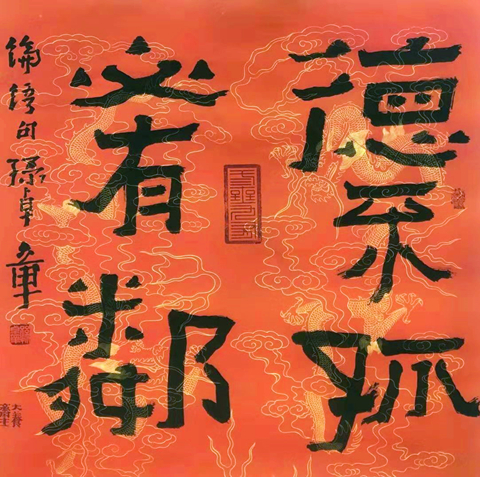 德不孤
必有鄰
論語句孫卓章